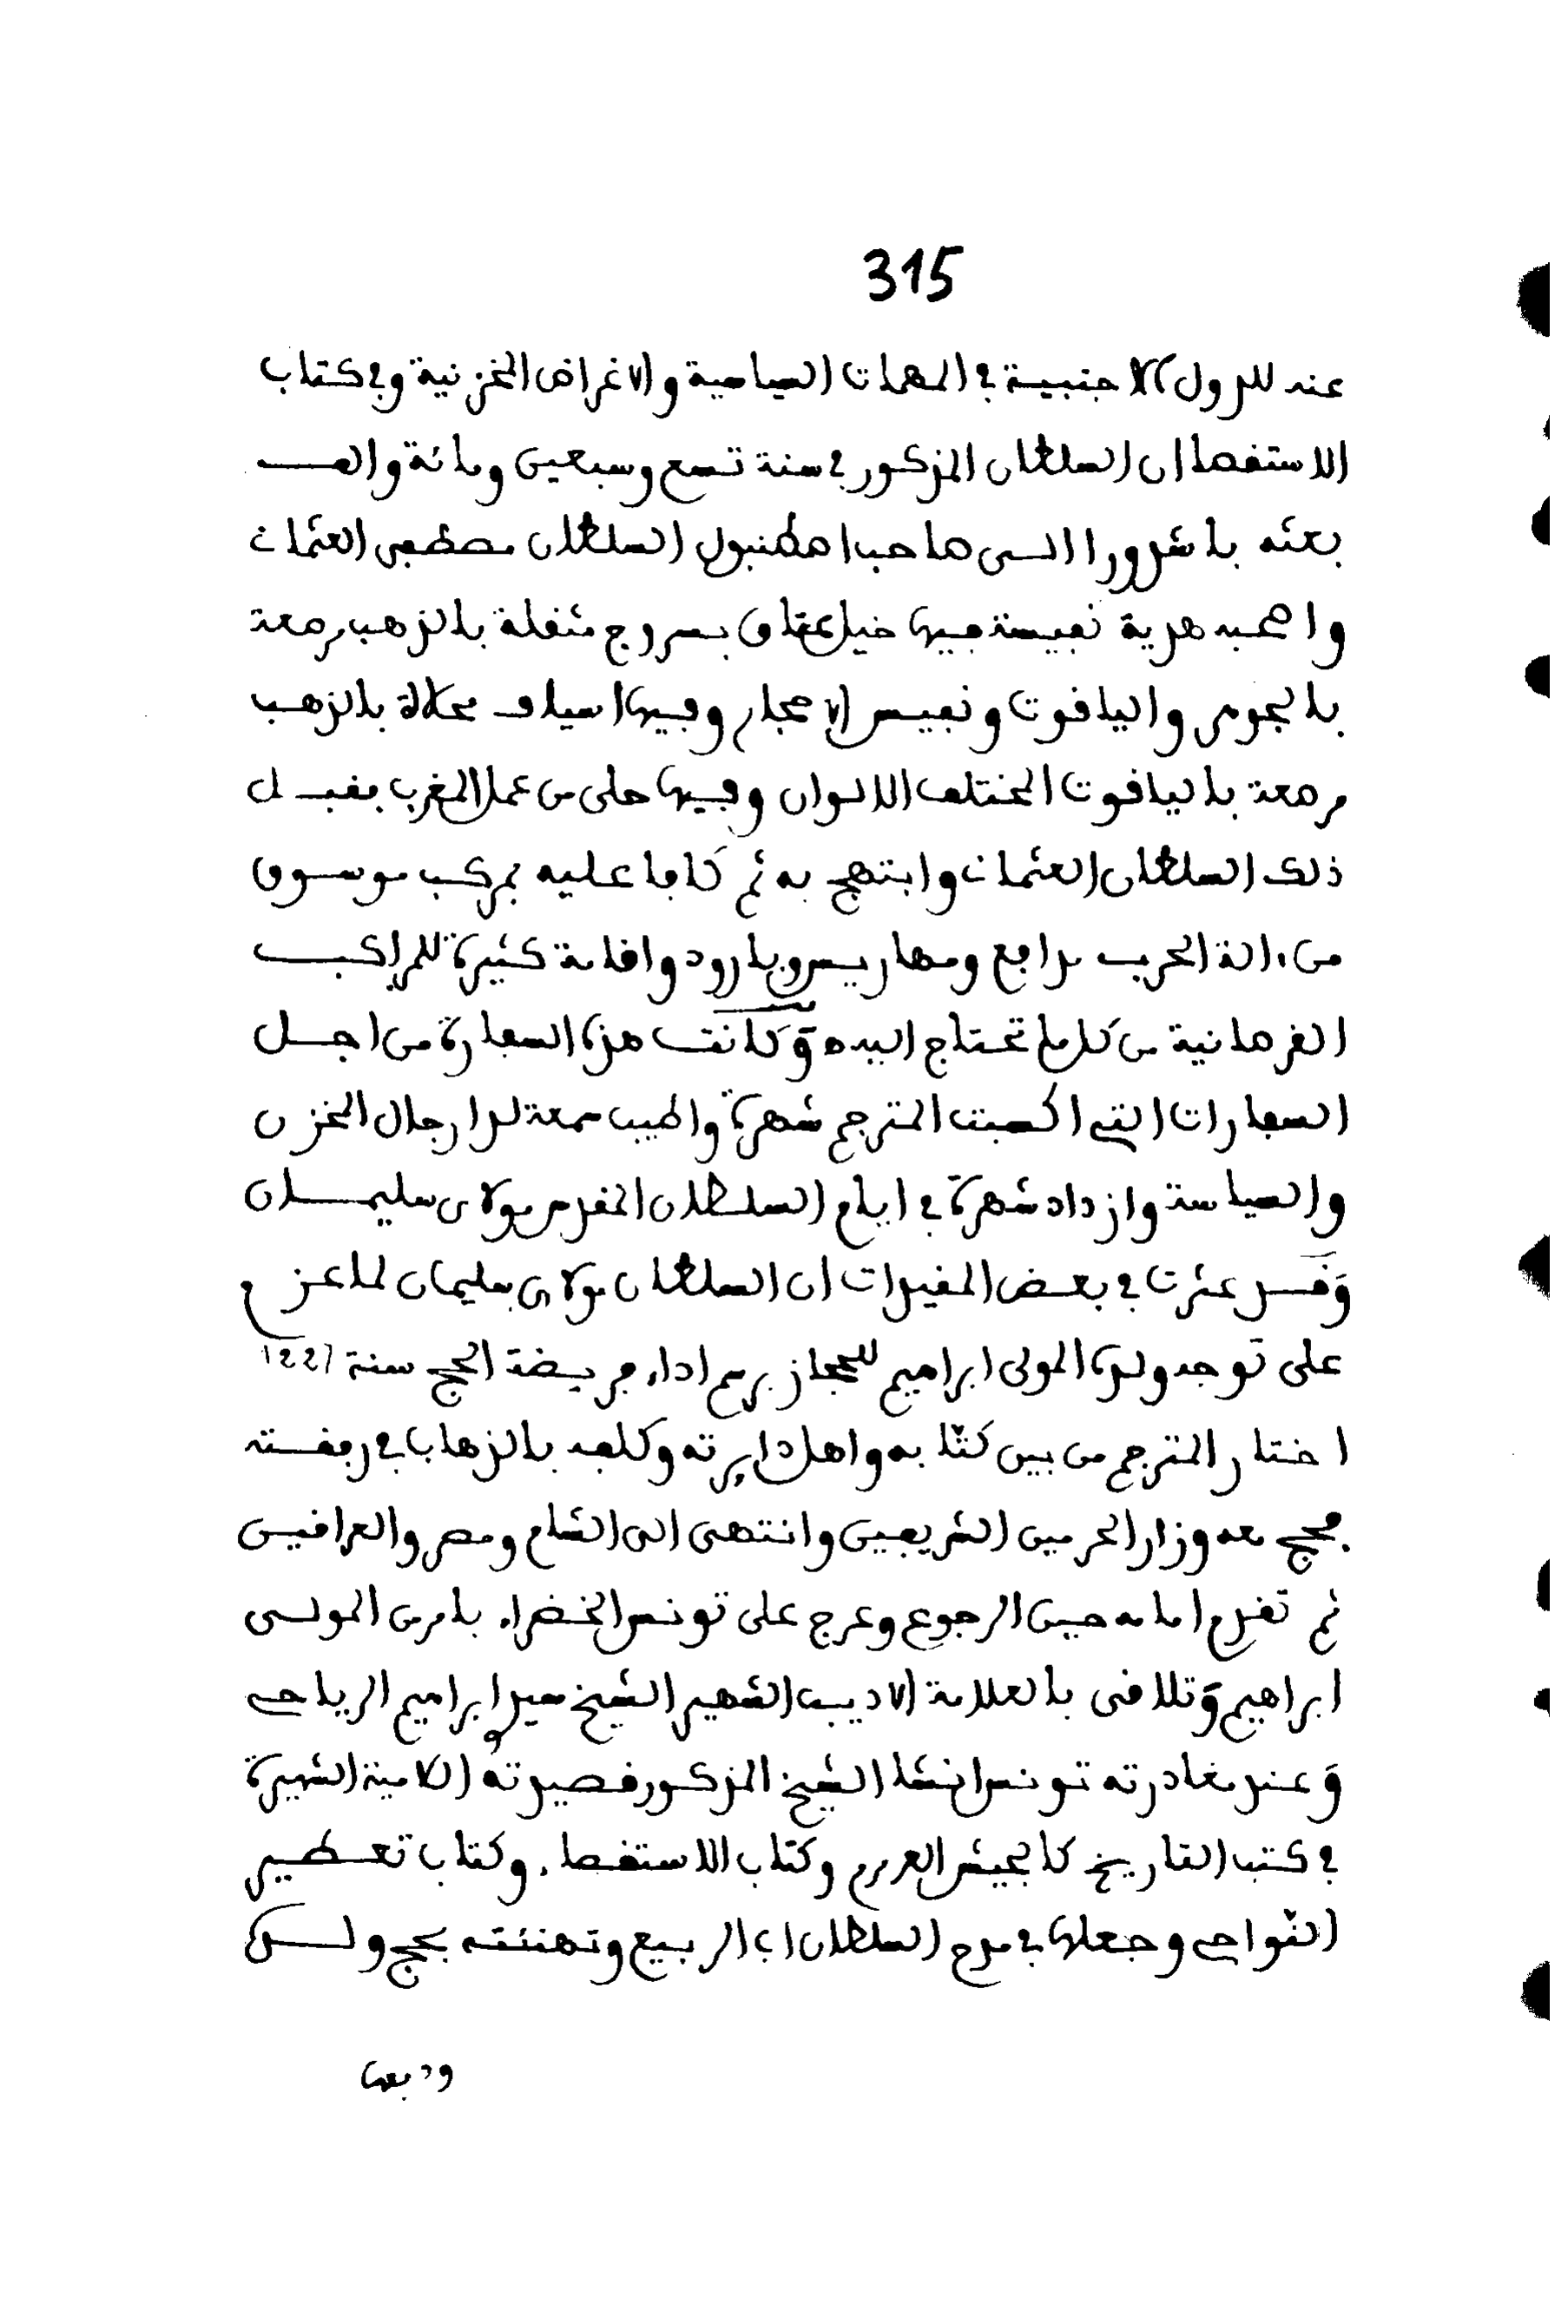 315
عنه للدول الاجنبية في المهمات السياسية والاغراض المخزنية وفي كتاب
الاستقصا ان السلطان المذكور في سنة تسع وسبعين ومائة والف
بعثه باشدورا الى صاحب اصطنبول السلطان مصطفى العثماني
واصحبه هدية نفيسة فيها خيل عتاق بسروج مثقلة بالذهب مرصعة
بالجوهر والياقوت ونفيس الاحجار وفيها اسياف محلاة بالذهب
مرصعة بالياقوت المختلف الالوان وفيها حلي من عمل المغرب فقبل
ذلك السلطان العثماني وابتهج به ثم كافا عليه بمركب موسوق
من ءالة الحرب مدافع ومهاريس وبارود واقامة كثيرة للمراكب
القرصانية من كل ما تحتاج اليه وكانت هذه السفارة من اجل
السفارات التي اكسبت المترجم شهرة واطيب سمعة لدا رجال المخزن
والسياسة وازداد شهرة في ايام السلطان المقدس مولاي سليمان
وقد عثرت في بعض المقيدات ان السلطان مولاي سليمان لما عزم
على توجه ولده المولى ابراهيم للحجاز برسم اداء فريضة الحج سنة 1226
اختار المترجم من بين كتابه واهل دايرته وكلفه بالذهاب في رفقته
فحج معه وزار الحرمين الشريفين وانتهى الى الشام ومصر والعراقين
ثم تقدم امامه حين الرجوع وعرج على تونس الخضراء بامر من المولى
ابراهيم وتلاقى بالعلامة الاديب الشهير الشيخ سيد ابراهيم الرياحي
وعند مغادرته تونس انشا الشيخ المذكور قصيدته اللامية الشهيرة
في كتب التاريخ كالجيش العرمرم وكتاب الاستقصاء وكتاب تعطير
النواحي وجعلها في مدح السلطان ابي الربيع وتهنئته بحج ولده